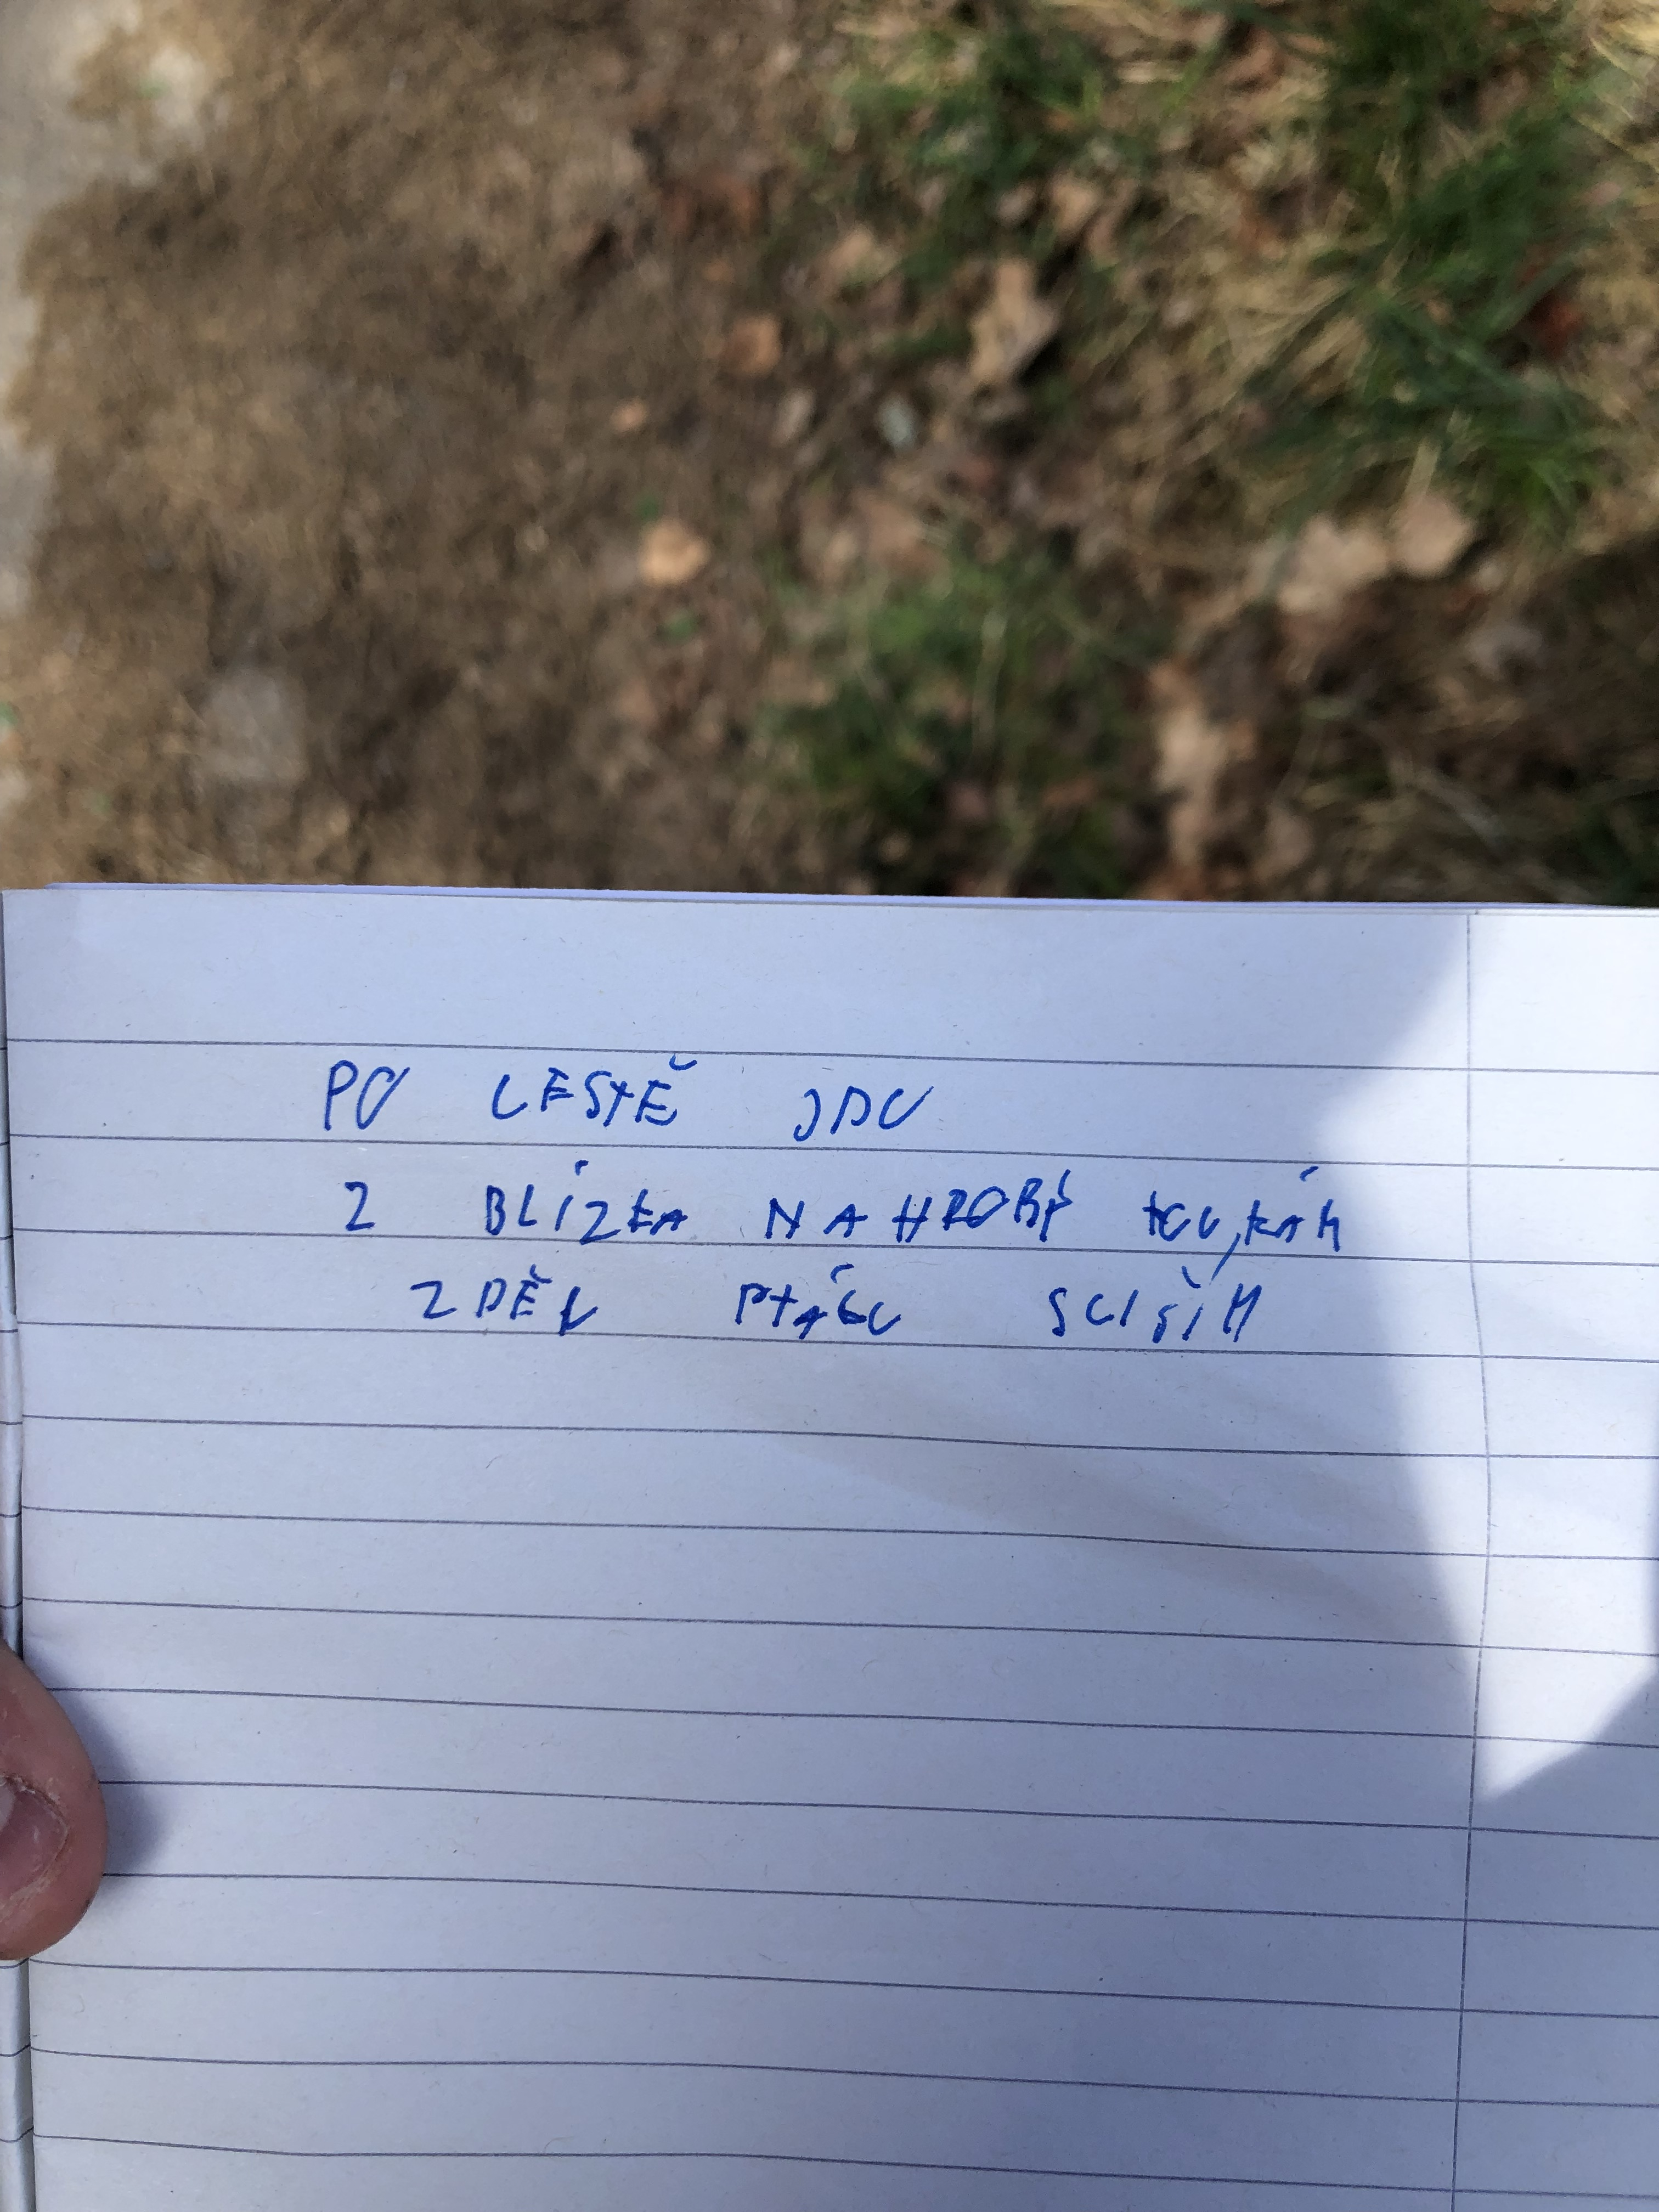 PO CESTĚ JDU
Z BLÍZKA NÁHROBY KOUKÁM
ZPĚV PTÁKŮ SLYŠÍM